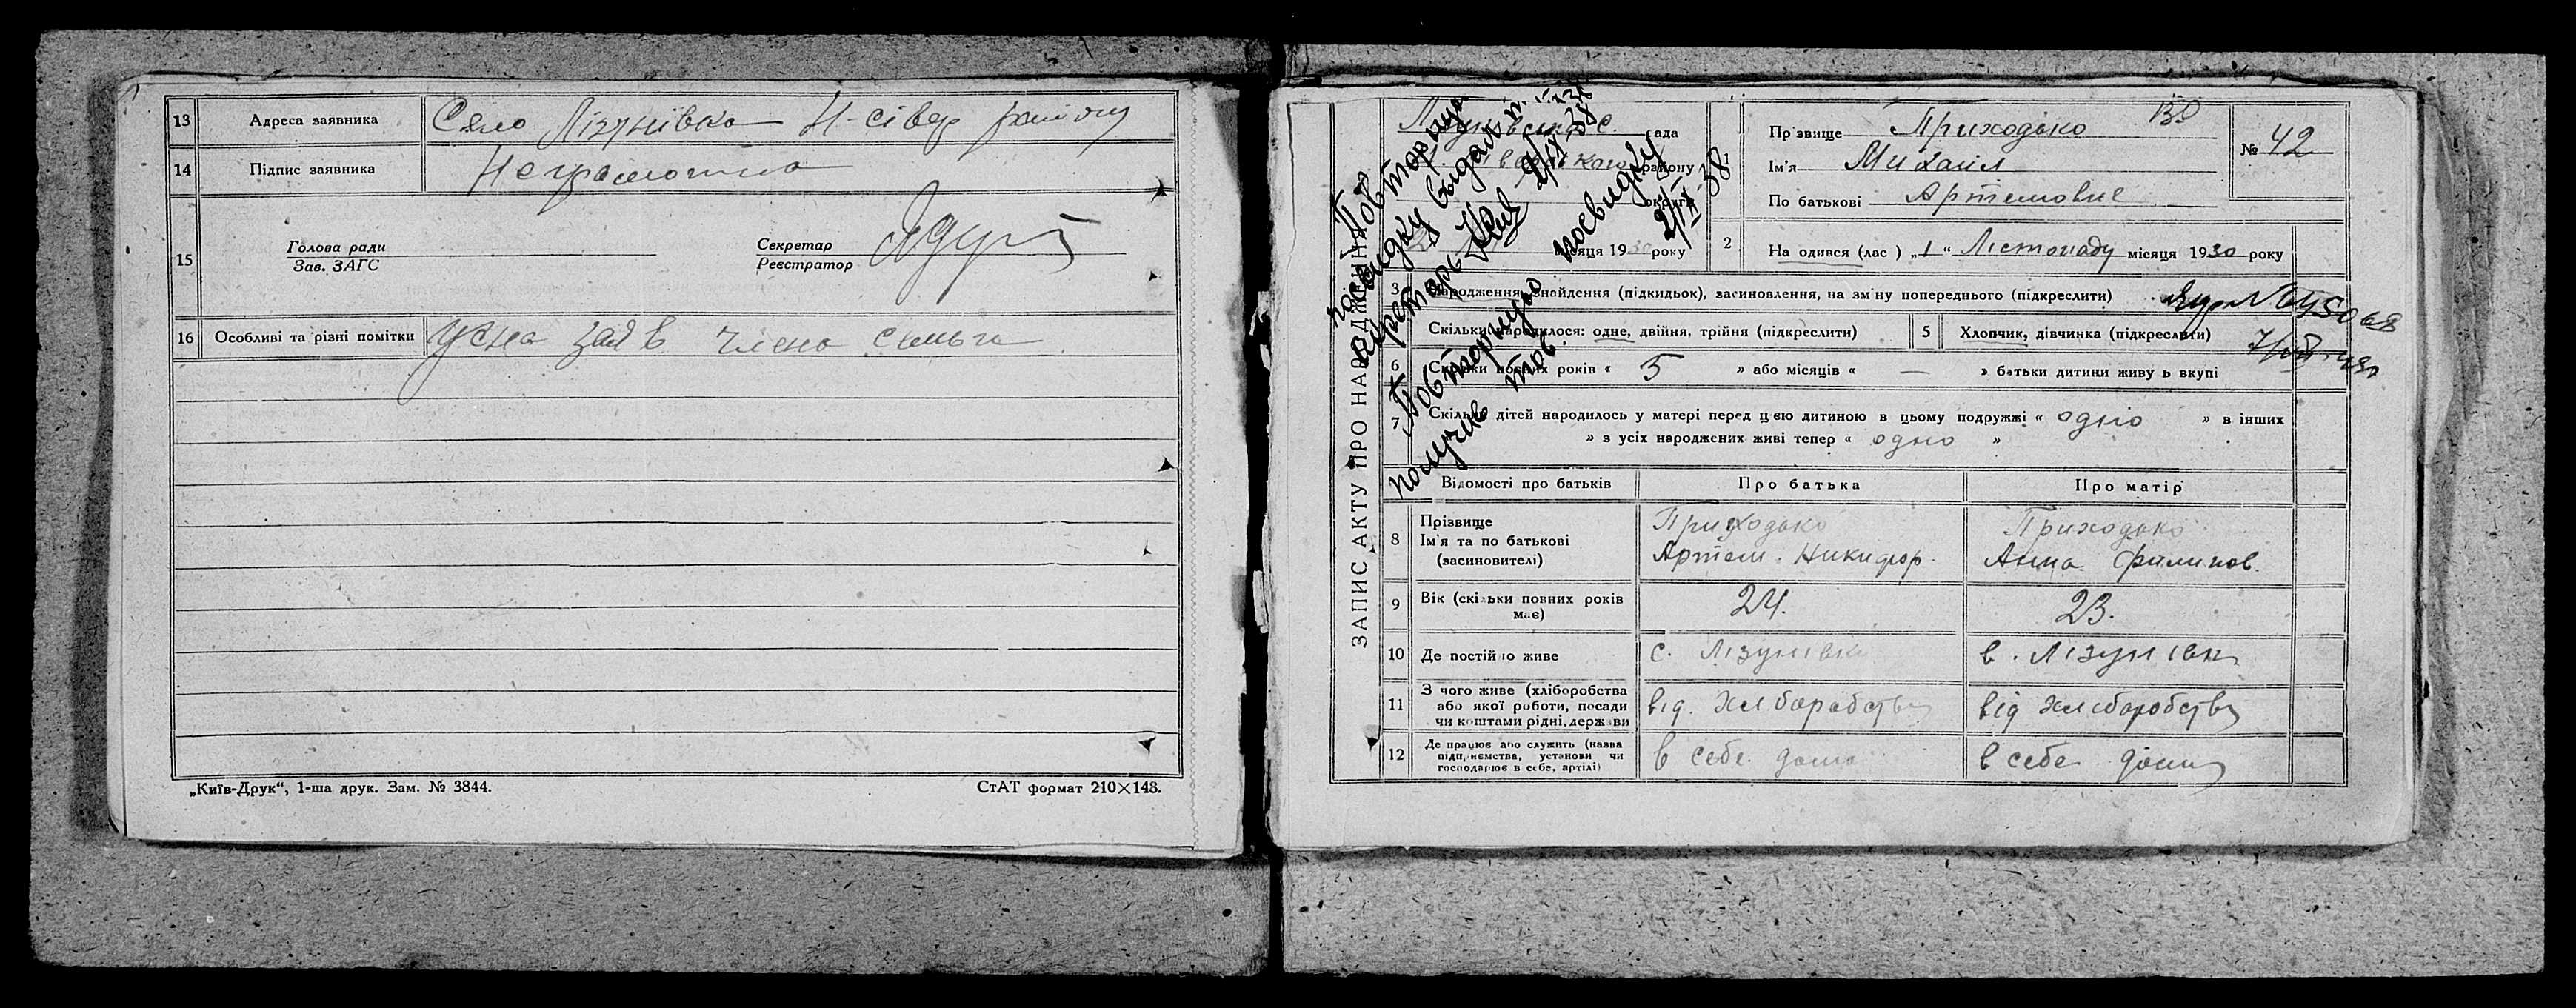 13 Адреса заявника Село Лізунівка Н-сівер району
14 Підпис заявника Неграмотна
15 Голова ради
Зав. ЗАГС
Секретар
Реєстратор
16 Особливі та різні помітки Усна заяв члена сем
„Київ-Друк“, 1-ша друк. Зам. № 3844.
СтАТ формат 210×148.
ЗАПИС АКТУ ПРО НАРОДЖЕННЯ
с. рада
району
округи
місяця 1930 року
Повторную
посвидку выдал
секретарь
2/IX 38
Повторную посвидку
получив
2/IX 38
1 Прізвище Приходько
Ім'я Михаил
По батькові Артемовие
№ 42
2 На одився (лас ) „1“ Лістопаду місяця 1930 року
3 Народження, знайдення (підкидьок), засиновлення, на зміну попереднього (підкреслити)
Скільки народилося: одне, двійня, трійня (підкреслити)
5 Хлопчик, дівчинка (підкреслити)
6 Скільки повних років « 5 » або місяців « — » батьки дитини живуть вкупі
7 Скільки дітей народилось у матері перед цією дитиною в цьому подружжі « одно » в інших
» з усіх народжених живі тепер « одно »
Відомості про батьків Про батька Про матір
8 Прізвище
Ім'я та по батькові
(засиновителі)
Приходько
Артем. Никифор.
Приходько
Анна Филипов.
9 Вік (скільки повних років
має)
24. 23.
10 Де постійно живе с. Лізунівка в. Лізунівк
11 З чого живе (хліборобства
або якої роботи, посади
чи коштами рідні, держави
від. хлібаробству від хліборобству
12 Де працює або служить (назва
підприємства, установи чи
господарює в себе, артілі)
в себе дома в себе дому